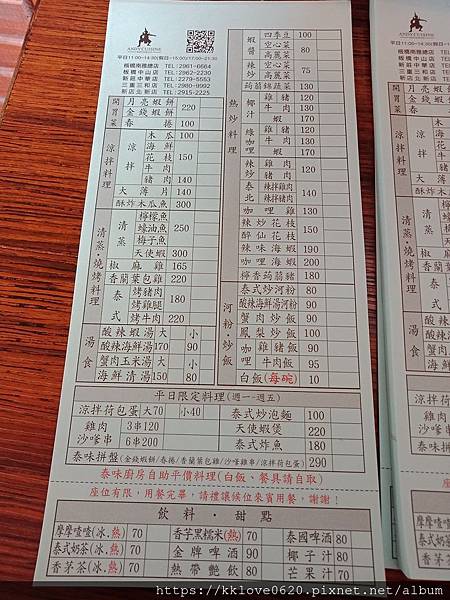 ANDYCUISINE
平日11:00~14:30(假日~15:00)/17:00~21:30
板橋南雅總店 TEL:2961-6664
板橋中山店 TEL:2962-2230
新莊中華店 TEL:2279-5553
三重三和店 TEL:2980-9992
新店北新店 TEL:2915-2225
開胃菜
月亮蝦餅
金錢蝦餅 220
春捲 100
涼拌料理
涼拌
木瓜 100
海鮮
花枝 150
牛肉
豬肉 140
大薄片 140
酥炸木瓜魚 300
清蒸・燒烤料理
清蒸
檸檬魚
蠔油魚 250
梅子魚
天使蝦 300
椒麻雞 165
香蘭葉包雞 220
泰式
烤豬肉 180
烤雞腿
烤牛肉 220
湯食
酸辣蝦湯 大 小
酸辣海鮮湯 170 90
蟹肉玉米湯 大 小
海鮮清湯 150 80
熱炒料理
蝦醬
四季豆 100
空心菜 80
高麗菜
辣炒
空心菜 75
高麗菜
蒟蒻錦蔬 130
椰汁
雞 120
豬 130
牛肉
蝦 170
綠咖
雞 120
牛肉 130
蝦 170
辣炒
豬肉 120
牛肉 140
泰北
辣拌雞肉 130
辣拌牛肉 140
咖哩雞 130
辣炒花枝 150
醉仙花枝
辣味海蝦 190
咖哩海蝦 200
檸香蒟蒻豬 180
河粉・炒飯
泰式炒河粉 80
酸辣海鮮湯河粉 90
蟹肉炒飯 90
鳳梨炒飯 100
咖哩
雞飯 90
牛肉飯 95
白飯(每碗) 10
平日限定料理(週一~週五)
涼拌荷包蛋 大70 小40
雞肉沙嗲串 3串120
6串200
泰式炒泡麵 100
天使蝦煲 220
泰式炸魚 180
泰味拼盤(金錢蝦餅/春捲/香蘭葉包雞/沙嗲雞串/涼拌荷包蛋) 290
泰味廚房自助平價料理(白飯、餐具請自取)
座位有限，用餐完畢，請禮讓候位來賓用餐，謝謝！
飲料・甜點
摩摩喳喳(冰.熱) 70
香芋黑糯米(熱) 70
泰國啤酒 80
泰式奶茶(冰.熱) 70
金牌啤酒 90
椰子汁 80
香茅茶(冰.熱) 70
熱帶艷飲 80
芒果汁 70
https://kklove0620.pixnet.net/blog